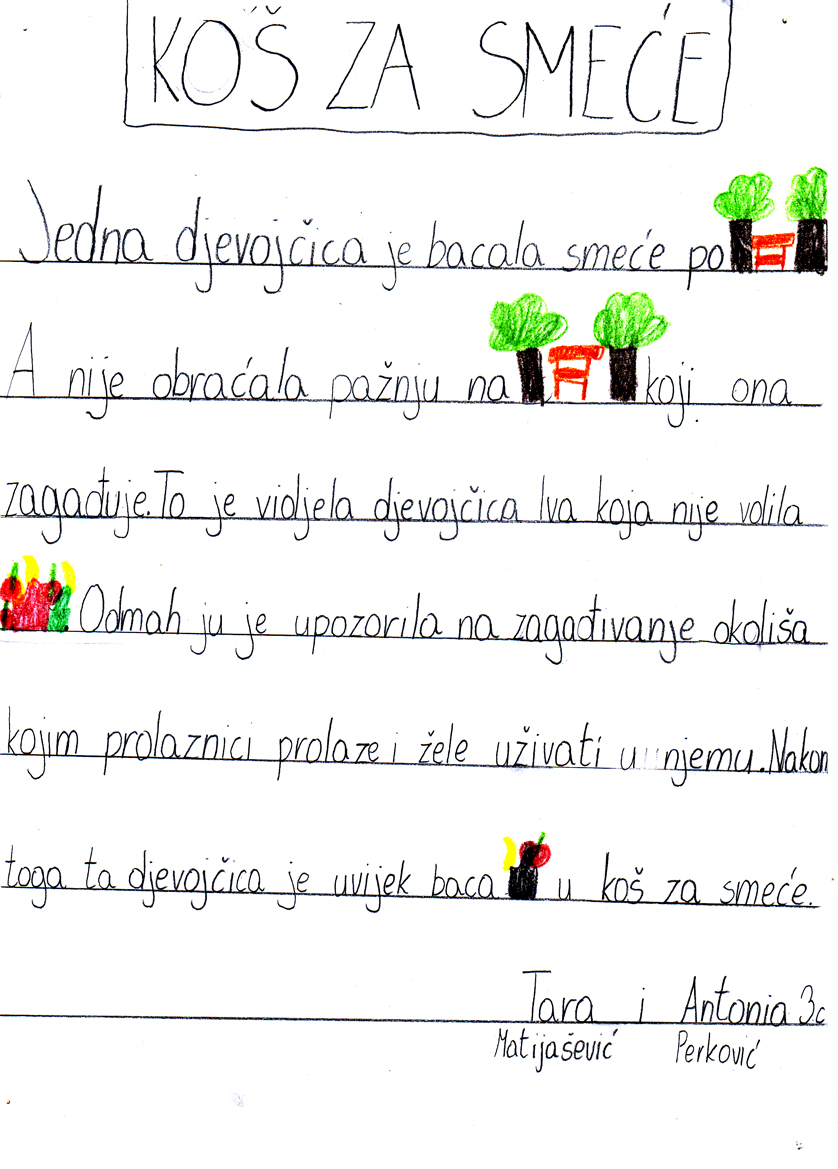 KOŠ ZA SMEĆE
Jedna djevojčica je bacala smeće po
A nije obraćala pažnju na koji ona
zagađuje. To je vidjela djevojčica Iva koja nije volila
Odmah ju je upozorila na zagađivanje okoliša
kojim prolaznici prolaze i žele uživati u njemu. Nakon
toga ta djevojčica je uvijek baca u koš za smeće.
Tara i Antonia 3c
Matijašević Perković